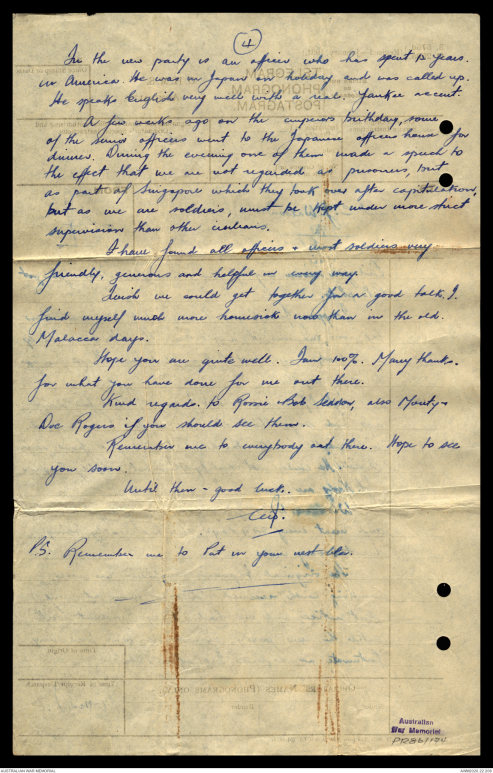 4
In the new party is an officer who has spent 12 years.
in America. He was in Japan on holiday and was called up.
He speaks English very well with a real Yankee accent.
A few weeks ago on the emperors birthday, some
of the senior officers went to the Japanese officers house for
dinner. During the evening one of them made a speech to
the effect that we are not regarded as prisoners, but
as part of Singapore which they took over after capitulation,
but as we are soldiers, must be kept under more strict
supervision than other civilians.
I have found all officers + most soldiers very
friendly, generous and helpful in every way.
Wish we could get together for a good talk. I
find myself much more homesick now than in the old
Malacca days.
Hope you are quite well. I am 100%. Many thanks.
for what you have done for me out there.
Kind regards. to Rossie + Bob also Monty +
Doc Rogers if you should see them.
Remember me to everybody out there. Hope to see
you soon.
Until then - good luck.
P.S. Remember me to Pat in your next
TELEGRAM
PHONOGRAM
POSTAGRAM
Time of Origin
OPERATORS' NAMES (PHONOGRAMS ONLY)
Australian
War Memorial
AUSTRALIAN WAR MEMORIAL